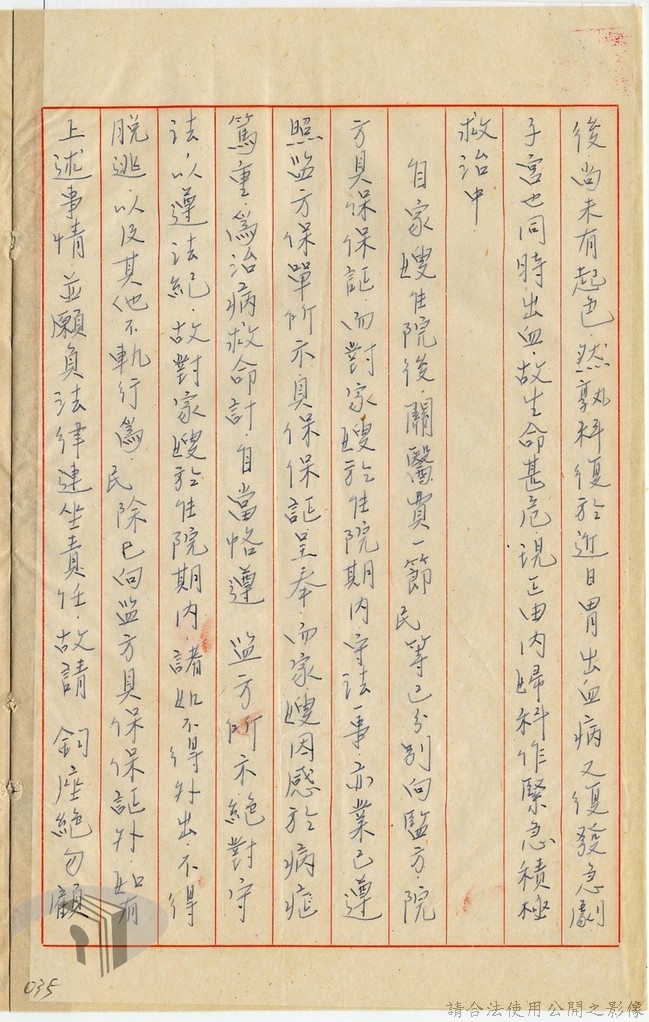 後尚未有起色.然孰料復於近日胃出血病又復發急劇
子宮也同時出血.故生命甚危.現正由內婦科作緊急積極
救治中.
自家嫂住院後.關醫費一節民等已分別向監方.院
方具保保証.而對家嫂於住院期內守法一事.亦業已遵
照监方保單所示具保保証呈奉.而家嫂因感於病症
篤重.為治病救命計.自當恪遵 监方所示絕對守
法.以遵法紀.故對家嫂於住院期內.諸如不得外出.不得
脫逃.以及其他不軌行為.民除已向监方具保保証外.如有
上述事情並願負法律連坐責任.故請 鈞座絕勿顧
035
請合法使用公開之影像